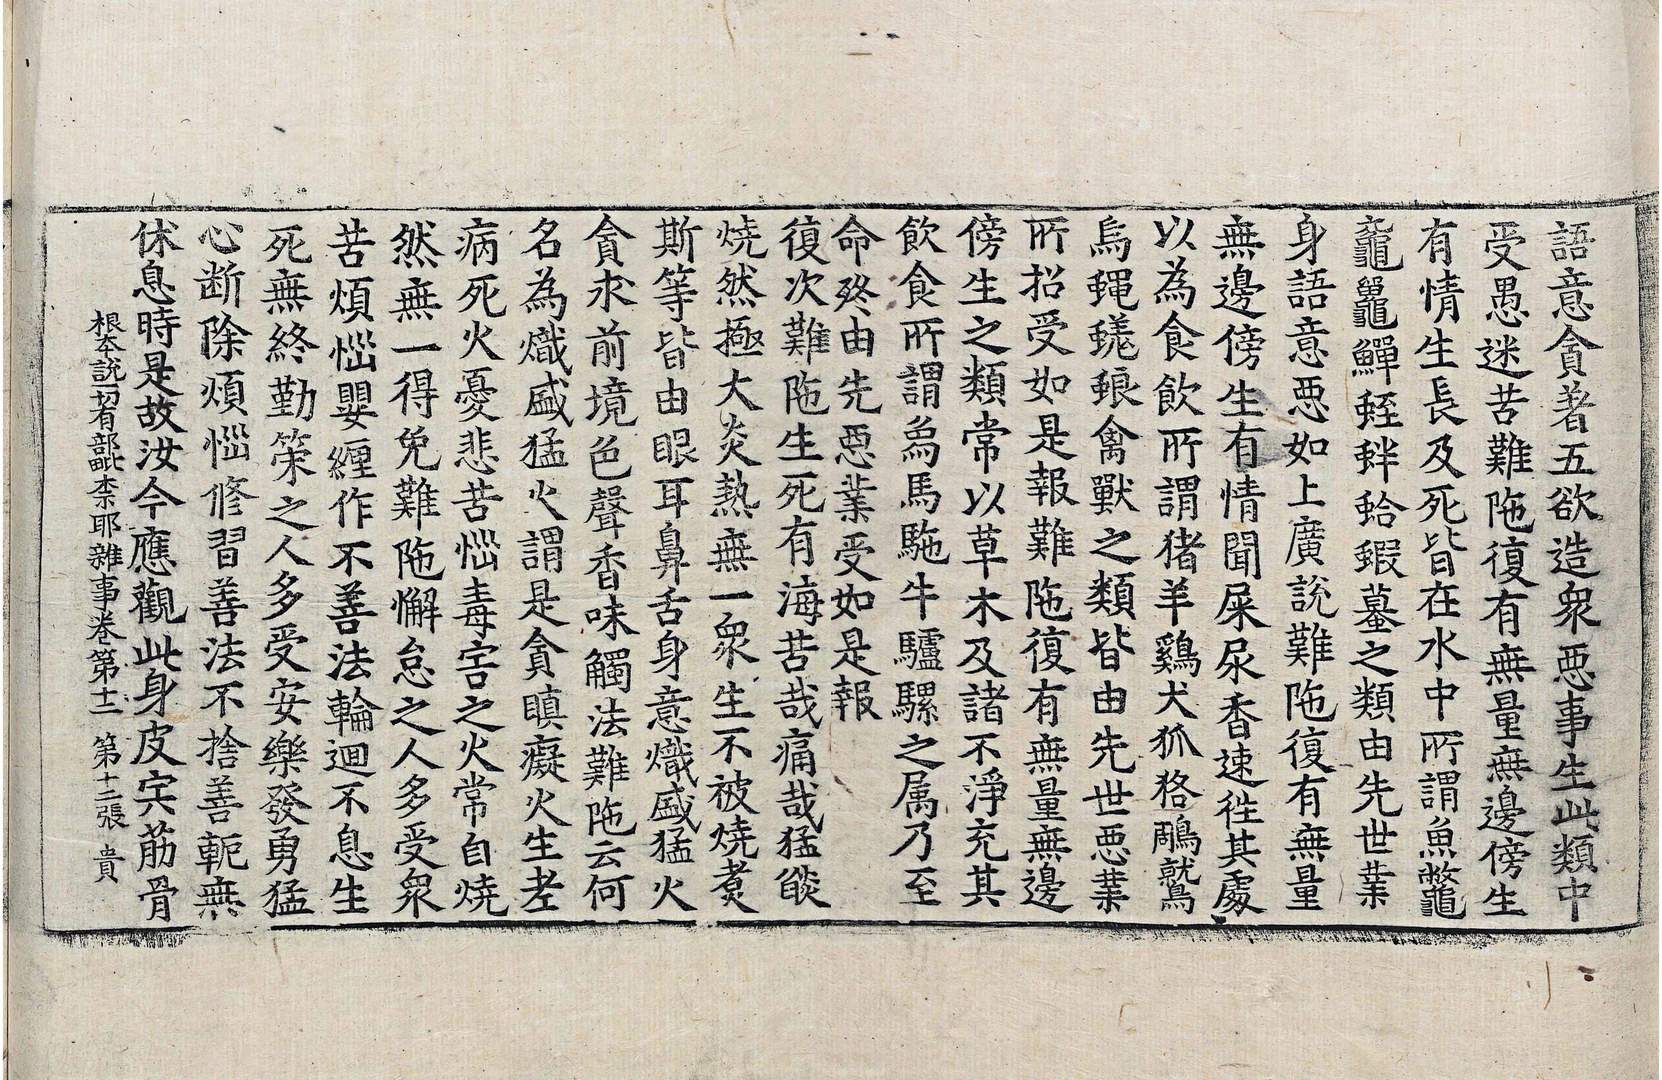 語意貪著五欲造衆惡事生此類中
受愚迷苦難陁復有無量無邊傍生
有情生長及死皆在水中所謂魚鼈
黿鼉鱓蛭蚌蛤蝦蟇之類由先世業
身語意惡如上廣說難陁復有無量
無邊傍生有情聞屎尿香速徃其處
以為食飲所謂猪羊鷄犬狐狢鵰鷲
烏蠅蜣蜋禽獸之類皆由先世惡業
所招受如是報難陁復有無量無邊
傍生之類常以草木及諸不淨充其
飲食所謂象馬駞牛驢騾之属乃至
命終由先惡業受如是報
復次難陁生死有海苦哉痛哉猛㷔
燒然極大炎熱無一衆生不被燒煑
斯等皆由眼耳鼻舌身意熾盛猛火
貪求前境色聲香味觸法難陁云何
名為熾盛猛火謂是貪瞋癡火生老
病死火憂悲苦惱毒害之火常自燒
然無一得免難陁懈怠之人多受衆
苦煩惱嬰纏作不善法輪迴不息生
死無終勤策之人多受安樂發勇猛
心断除煩惱修習善法不捨善軛無
休息時是故汝今應觀此身皮宍筋骨
根本說一切有部毗奈耶雜事卷第十二 第十二張 貴